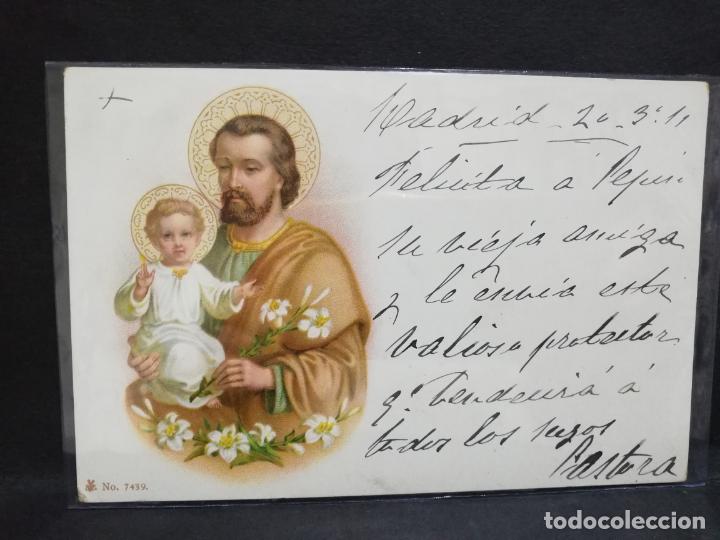 +
Madrid - 20 - 3º 11
Felicita á Pepin
su vieja amiga
y le envia este
valioso protector
qº bendecirá á
todos los suyos
Pastora
No. 7439.
todocoleccion.net